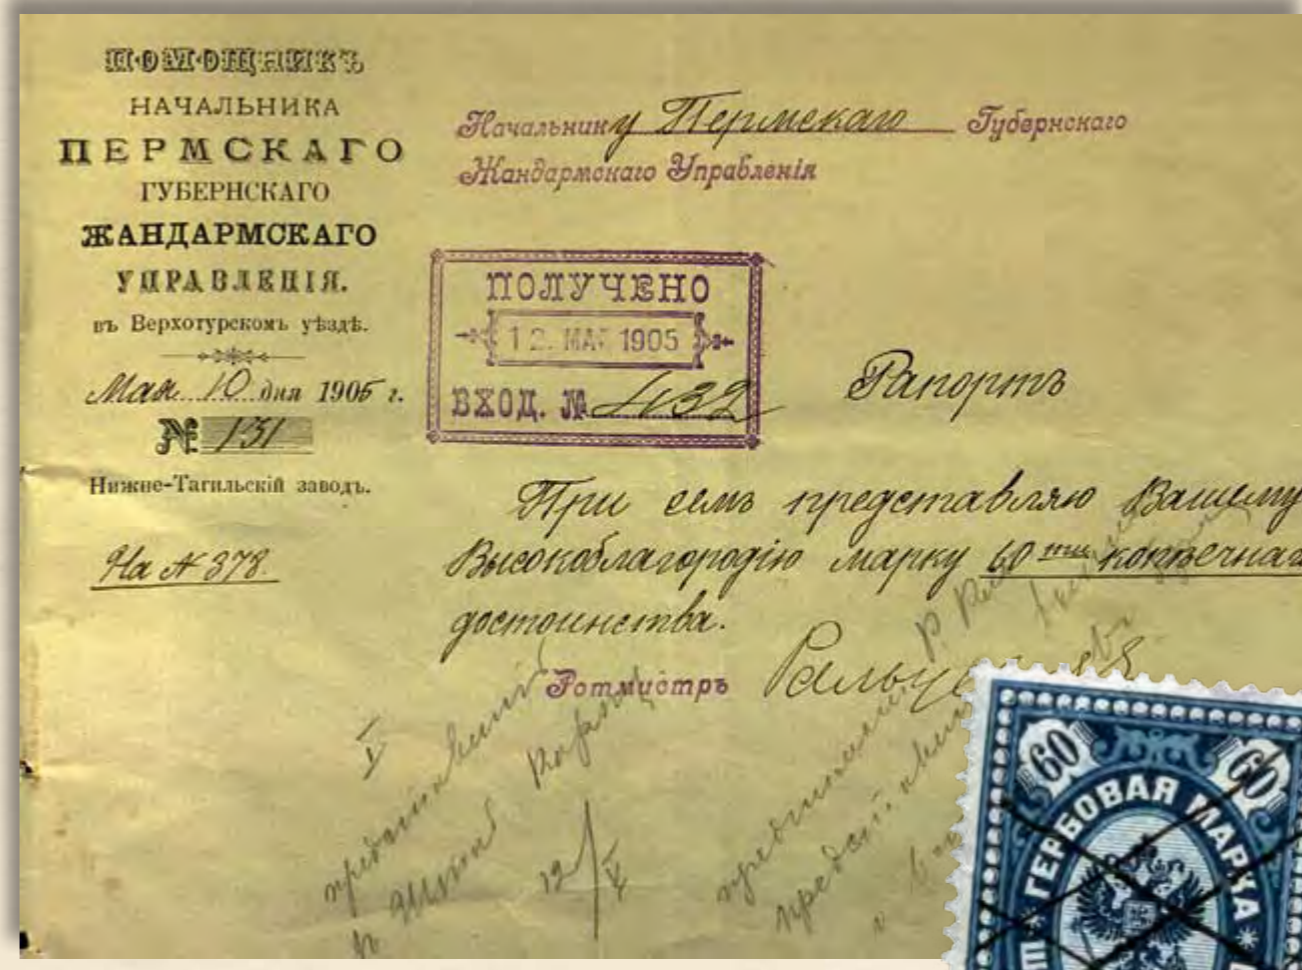 ПОМОЩНИКЪ
НАЧАЛЬНИКА
ПЕРМСКАГО
ГУБЕРНСКАГО
ЖАНДАРМСКАГО
УПРАВЛЕНІЯ.
въ Верхотурскомъ уѣздѣ.
Мая 10 дня 1905 г.
№ 131
Нижне-Тагильскій заводъ.
На № 378.
Начальнику Пермскаго Губернскаго
Жандармскаго Управленія
ПОЛУЧЕНО
12. МАЯ 1905
ВХОД. № 432
Рапортъ
При семъ представляю Вашему
Высокоблагородію марку 60ти копѣечнаго
достоинства.
Ротмистръ
12/V
60 60
ГЕРБОВАЯ МАРКА